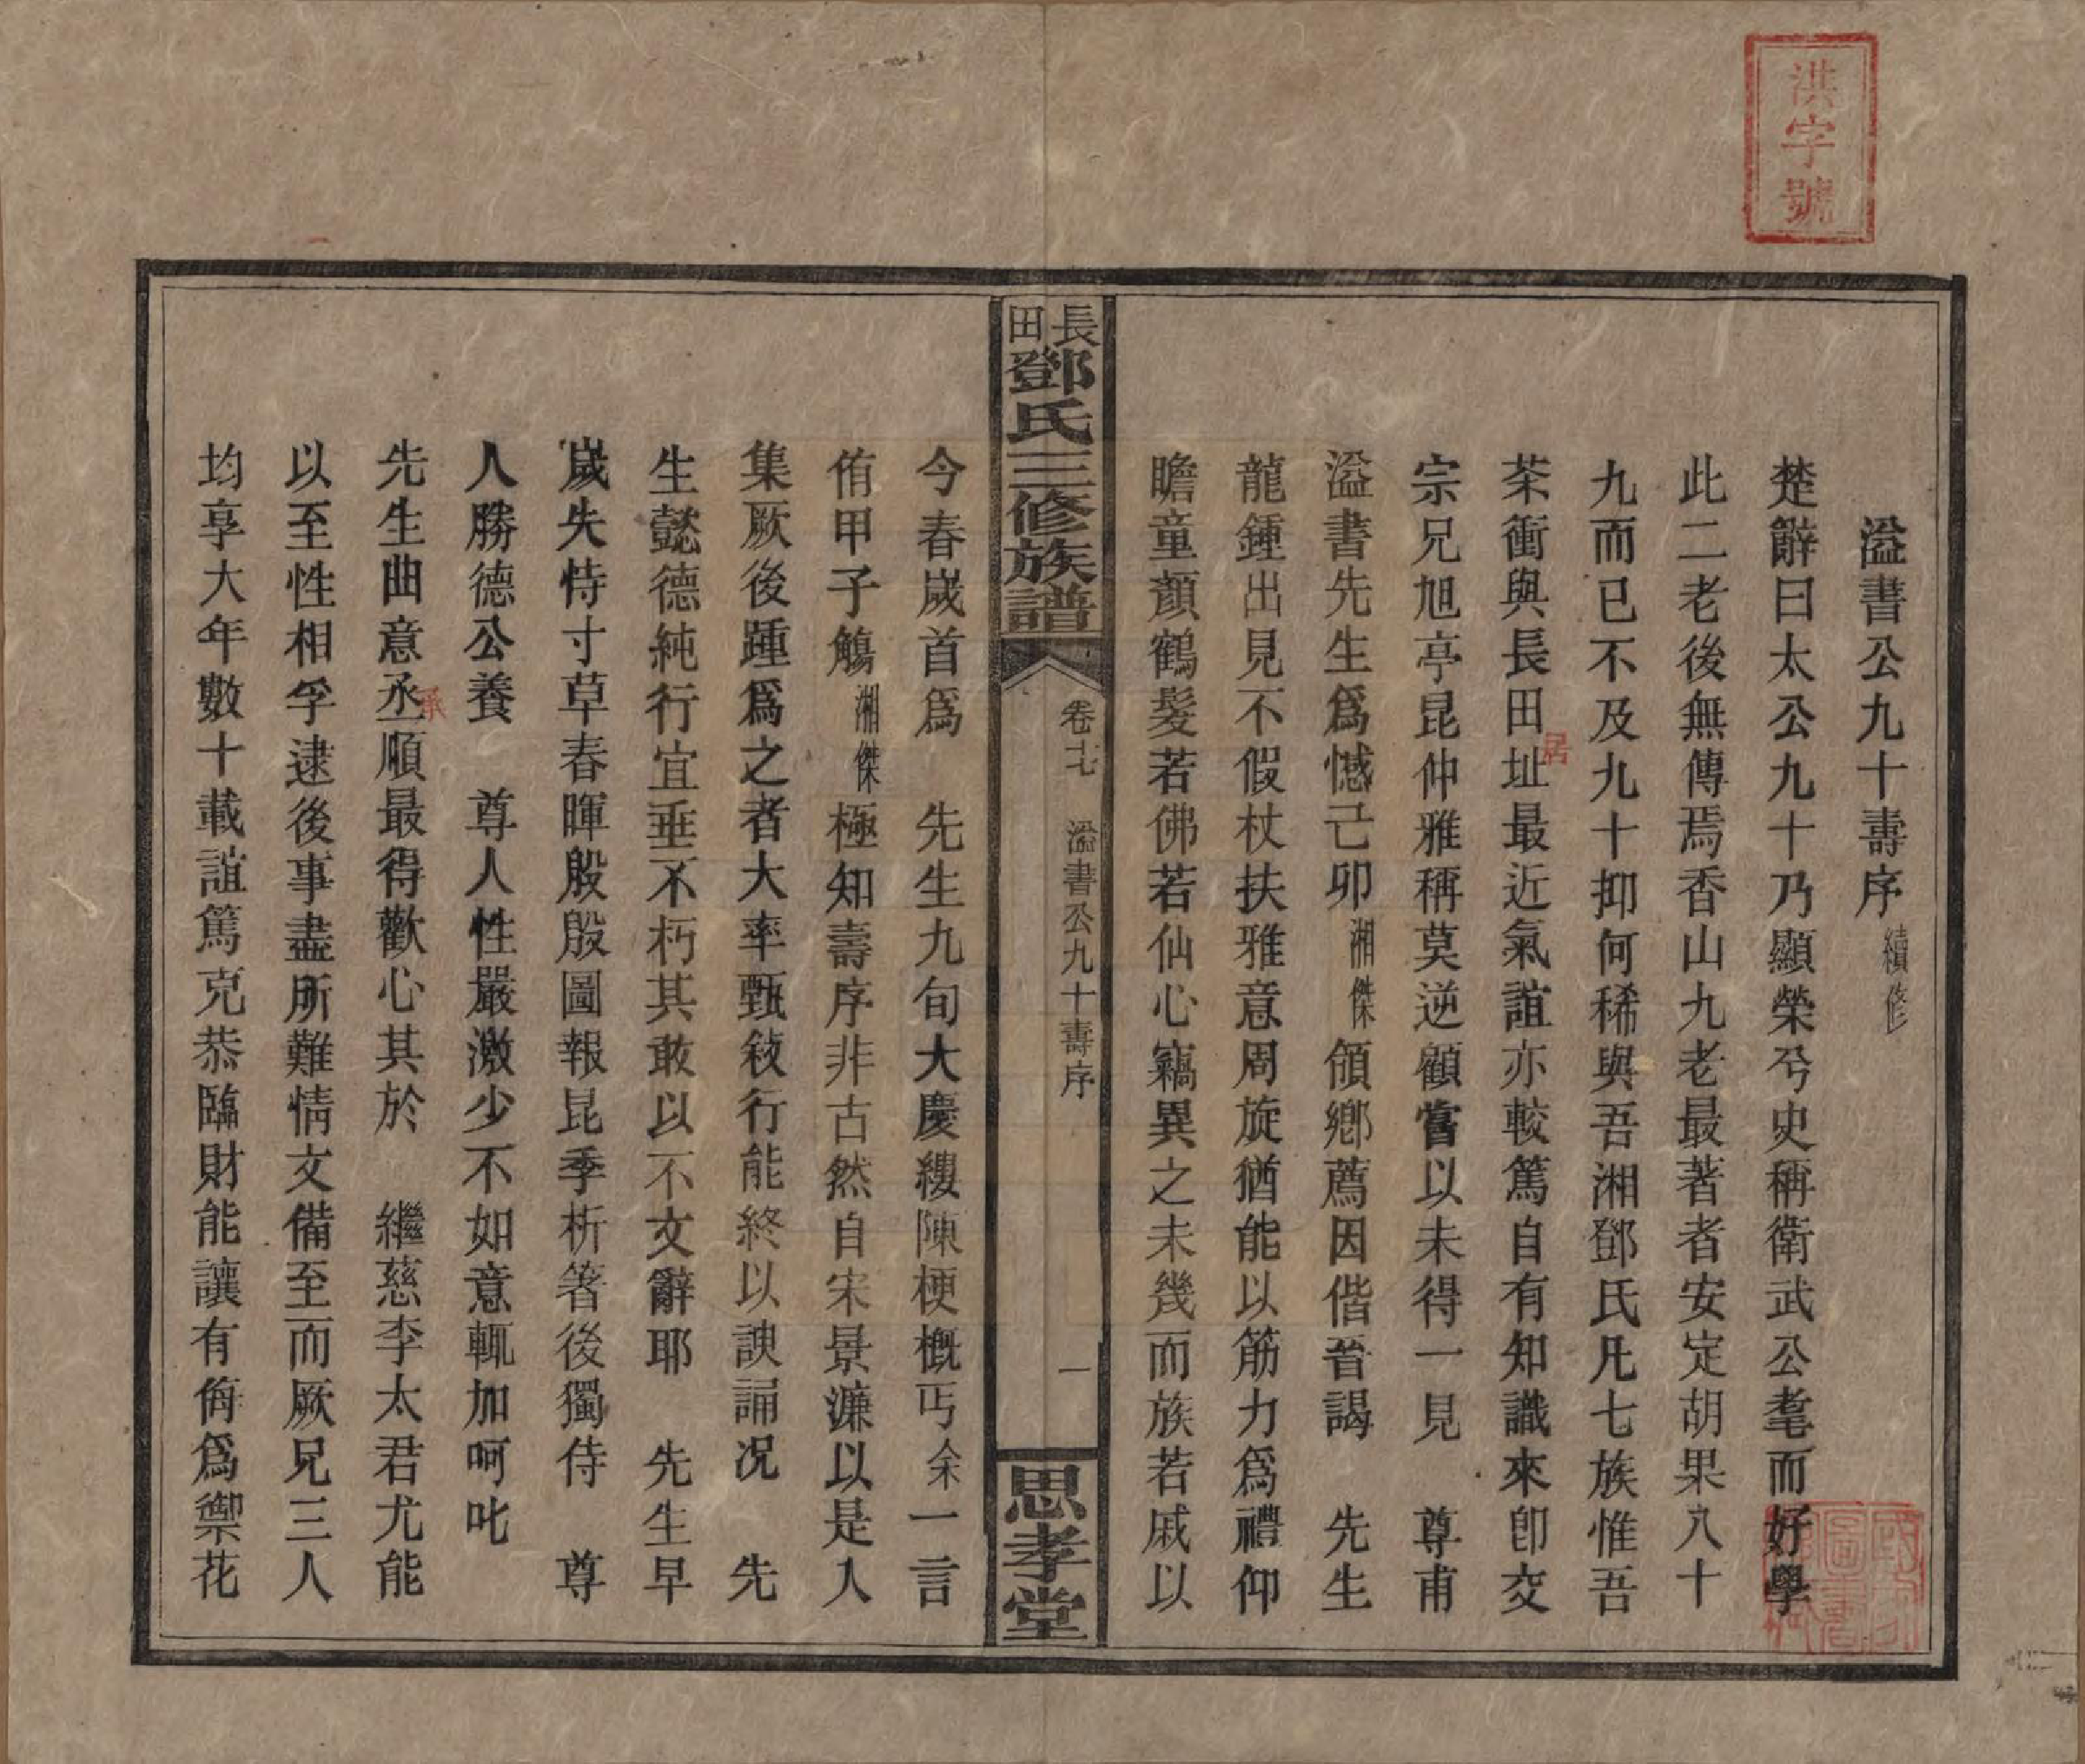 洪字號
溢書公九十壽序 續修
楚辭曰太公九十乃顯榮兮史稱衛武公耄而好學
此二老後無傳焉香山九老最著者安定胡果八十
九而已不及九十抑何稀與吾湘鄧氏凡七族惟吾
茶衝與長田址居最近氣誼亦較篤自有知識來卽交
宗兄旭亭昆仲雅稱莫逆顧嘗以未得一見　尊甫
溢書先生爲憾己卯湘傑領鄉薦因偕晉謁　先生
龍鍾出見不假杖扶雅意周旋猶能以筋力爲禮仰
瞻童顏鶴髮若佛若仙心竊異之未幾而族若戚以
長田鄧氏三修族譜
卷十七　溢書公九十壽序
一
思孝堂
今春歲首爲　先生九旬大慶縷陳梗概丐余一言
侑甲子觴湘傑極知壽序非古然自宋景濂以是入
集厥後踵爲之者大率甄敍行能終以諛誦況　先
生懿德純行宜垂不朽其敢以不文辭耶　先生早
歲失恃寸草春暉殷殷圖報昆季析箸後獨侍　尊
人勝德公養　尊人性嚴激少不如意輒加呵叱
先生曲意丞承順最得歡心其於　繼慈李太君尤能
以至性相孚逮後事盡所難情文備至而厥兄三人
均享大年數十載誼篤克恭臨財能讓有侮爲禦花